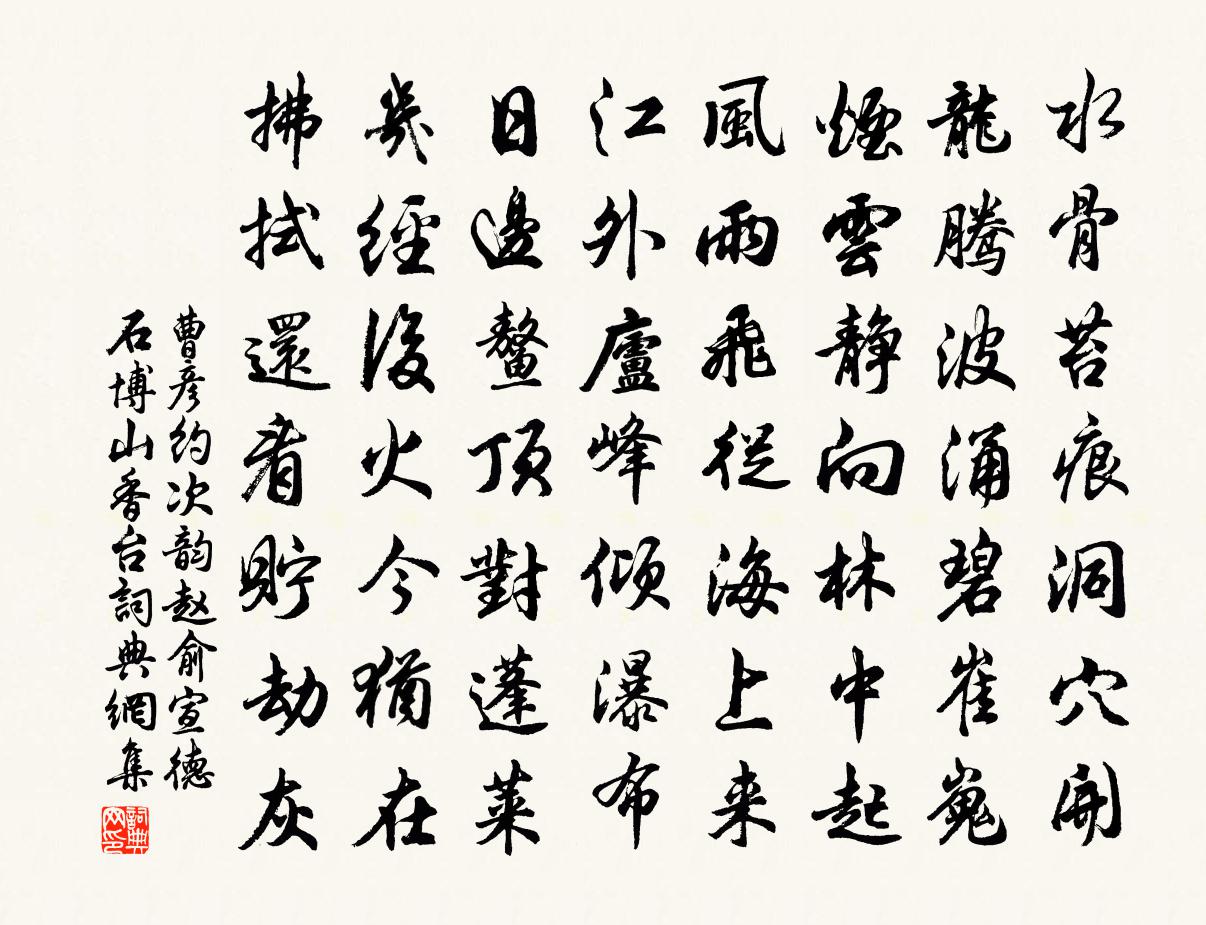 水骨苔痕洞穴開
龍騰波涌碧崔嵬
煙雲静向林中起
風雨飛從海上来
江外廬峰傾瀑布
日邊鰲頂對蓬萊
幾經後火今猶在
拂拭還看貯劫灰
曹彦约次韵赵俞宣德
石博山香台詞典網集
詞典網印